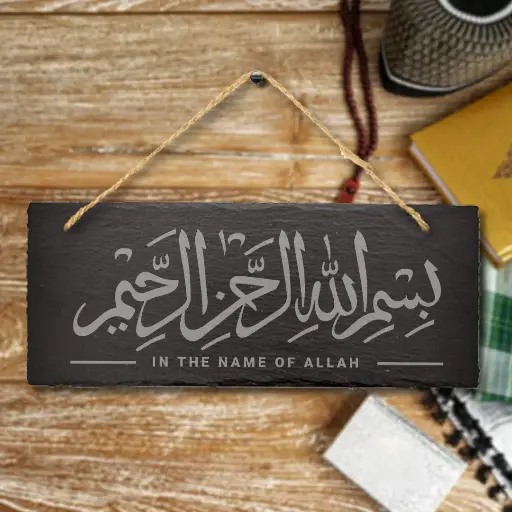 بِسْمِ اللهِ الرَّحْمٰنِ الرَّحِيْمِ
IN THE NAME OF ALLAH